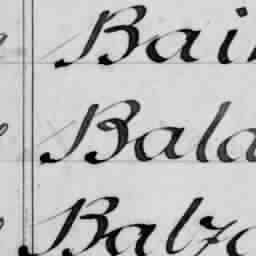 Bai
Bala
Balza